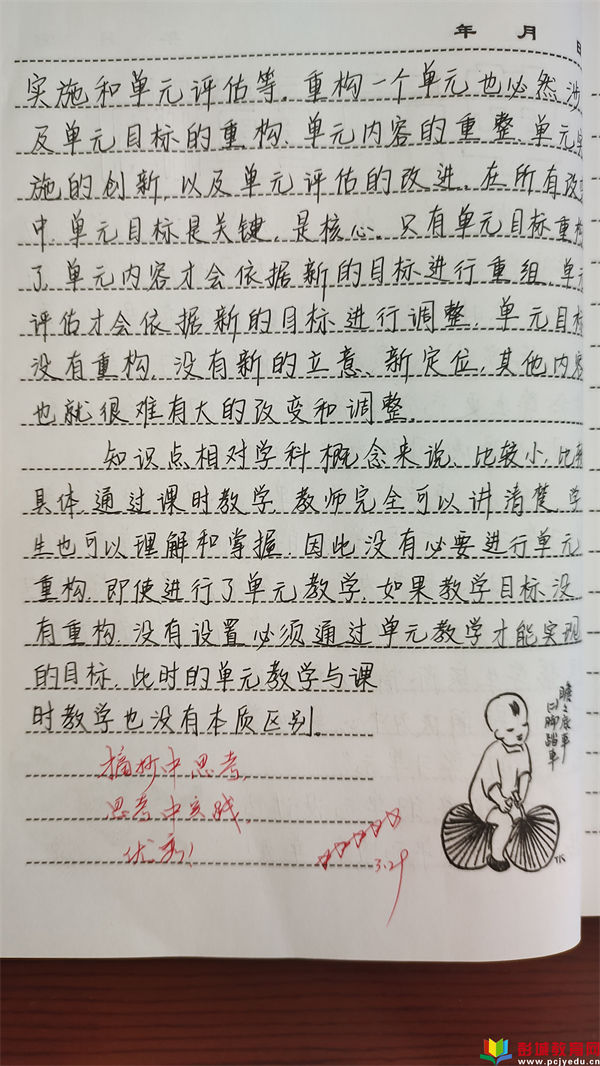 年 月 日
实施和单元评估等。重构一个单元也必然涉
及单元目标的重构、单元内容的重整、单元实
施的创新,以及单元评估的改进。在所有改变
中,单元目标是关键,是核心。只有单元目标重构
了,单元内容才会依据新的目标进行重组,单元
评估才会依据新的目标进行调整。单元目标
没有重构,没有新的立意、新定位,其他内容
也就很难有大的改变和调整。
知识点相对学科概念来说,比较小,比较
具体,通过课时教学,教师完全可以讲清楚,学
生也可以理解和掌握,因此没有必要进行单元
重构。即使进行了单元教学,如果教学目标没
有重构,没有设置必须通过单元教学才能实现
的目标,此时的单元教学与课
时教学也没有本质区别。
瞻瞻之康车
(二)脚踏车
TK
摘抄中思考,
思考中实践,
优秀!
3.29
彭城教育网
www.pcjyedu.cn